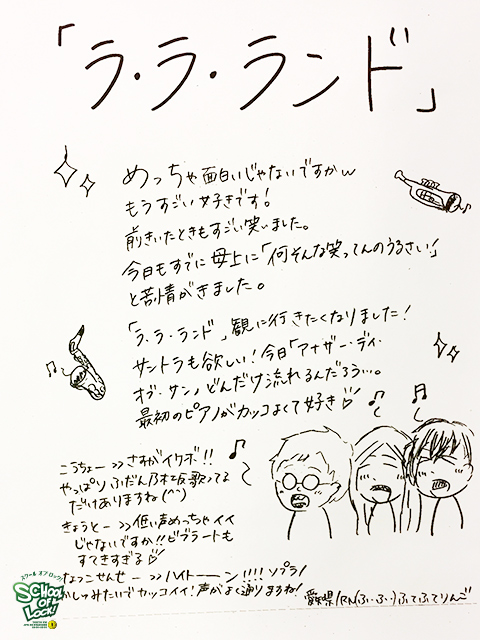 「ラ・ラ・ランド」
めっちゃ面白いじゃないですかw
もうすごい好きです!
前きいたときもすごい笑いました。
今日もすでに母上に「何そんな笑ってんのうるさい!」
と苦情がきました。
「ラ・ラ・ランド」観に行きたくなりました!
サントラも欲しい!今日「アナザー・デイ・
オブ・サン」どんだけ流れるんだろう…。
最初のピアノがカッコよくて好き♡
こうちょー >>さすがイケボ!!
やっぱりふだん乃木坂歌ってる
だけありますね(^^)
きょうとー >>低い声めっちゃイイ
じゃないですか!!ビブラートも
すてきすぎる♡
なつこせんせー >>ハイトーン!!!!ソプラノ
かしゅみたいでカッコイイ!声がよく通りますね!
愛知県/RN ふてふてりんご
スクール オブ ロック!
SCHOOL OF LOCK!